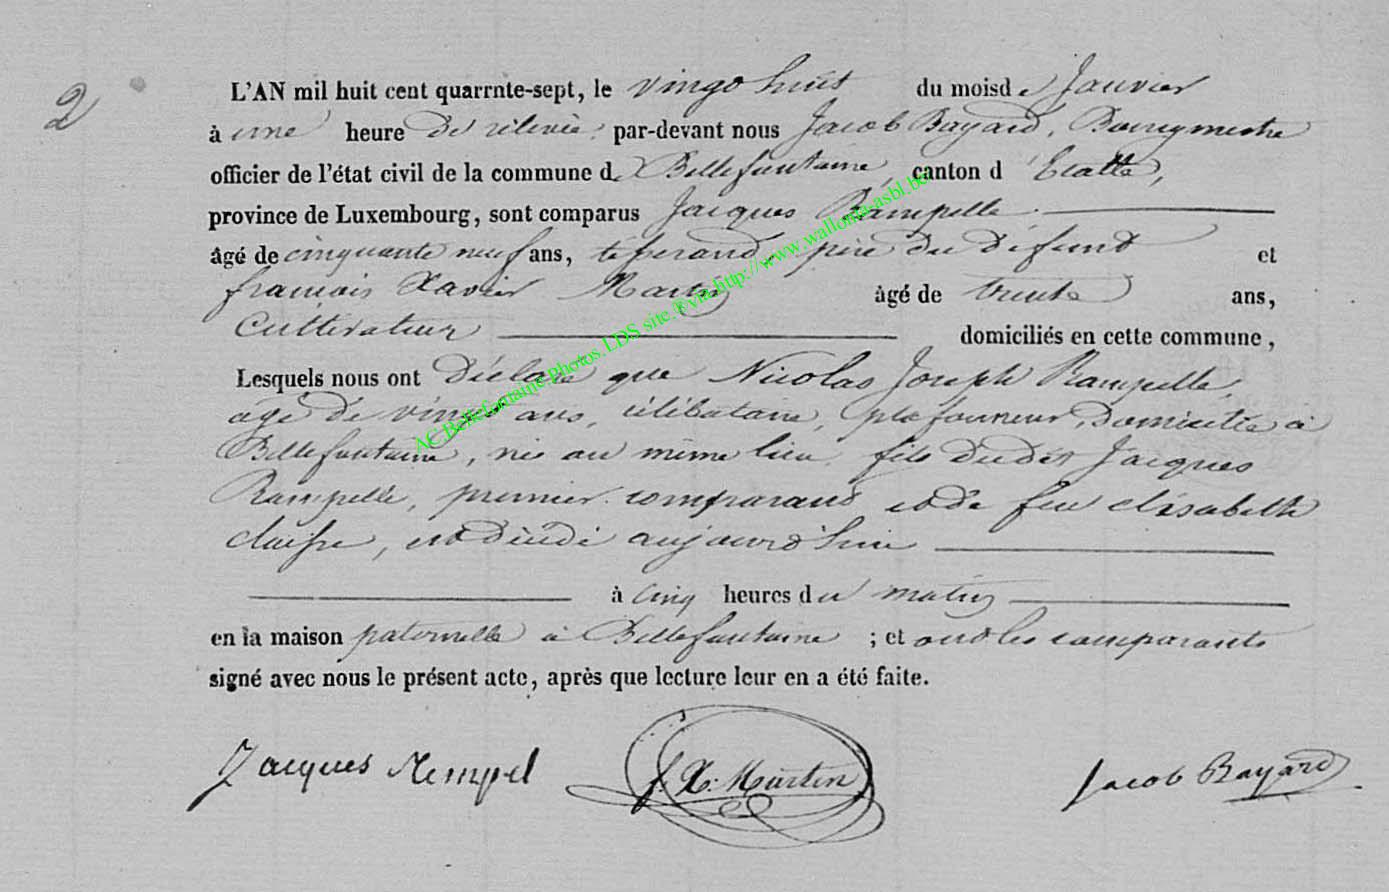 2
L'AN mil huit cent quarrnte-sept, le vingt huit du moisd e Janvier
à une heure de relevée, par-devant nous Jacob Bayard, Bourgmestre
officier de l'état civil de la commune de Bellefontaine, canton d'Etalle,
province de Luxembourg, sont comparus Jacques Rampelle
âgé de cinquante neuf ans, père du défunt et
francois Xavier Martin âgé de trente ans,
Cultivateur domiciliés en cette commune,
Lesquels nous ont Déclaré que Nicolas Joseph Rampelle,
agé de vingt ans, célibataire, plafonneur, domicilié à
Bellefontaine, né au même lieu, fils dudit Jacques
Rampelle, premier comparant et de feu elisabette
est décédé aujourd'hui
à cinq heures du matin
en la maison paternelle à Bellefontaine ; et ont les comparants
signé avec nous le présent acte, après que lecture leur en a été faite.
Jacques Rempel f. X. Martin Jacob Bayard
AC.Bellefontaine.Photos.LDS site.®via http://www.wallonia-asbl.be